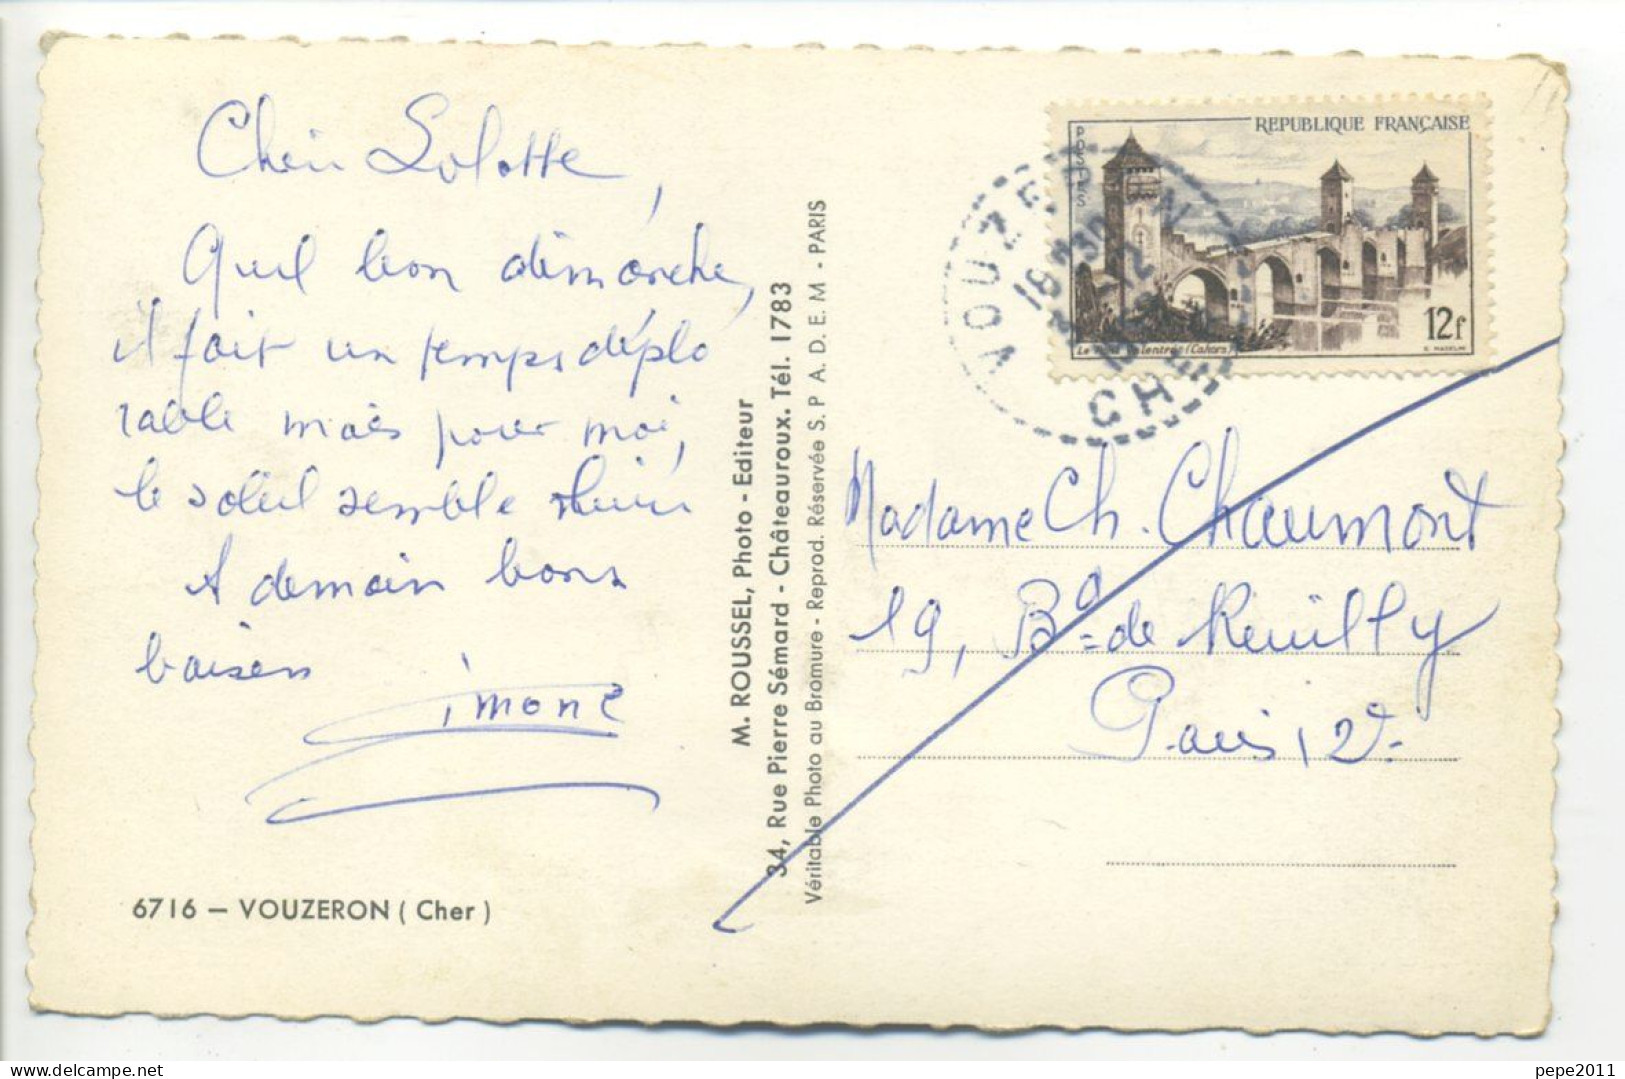 Chère Lolotte,
Quel bon dimanche,
il fait un temps déplo
rable mais pour moi,
le soleil semble
A demain bons
baisers
Simone
6716 – VOUZERON ( Cher )
M. ROUSSEL, Photo - Editeur
34, Rue Pierre Sémard - Châteauroux. Tél. 1783
Véritable Photo au Bromure - Reprod. Réservée S. P. A. D. E. M - PARIS
REPUBLIQUE FRANÇAISE
POSTES
12f
VOUZERON
18H30
CHER
Madame Ch. Chaumont
19, Bd de Reuilly
Paris 12e
pepe2011